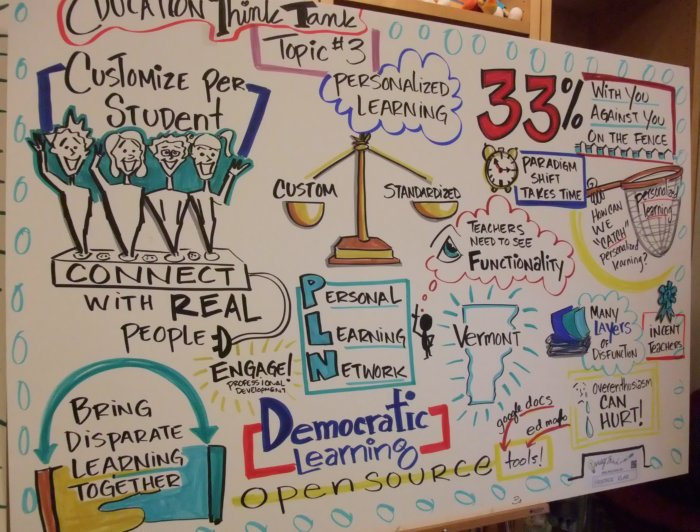 EDUCATION Think Tank
Topic #3
CUSTOMIZE PER
STUDENT
PERSONALIZED
LEARNING
33%
WITH YOU
AGAINST YOU
ON THE FENCE
PARADIGM
SHIFT
TAKES TIME
personalized
learning
HOW CAN
WE
"CATCH"
personalized
learning?
CUSTOM
STANDARDIZED
TEACHERS
NEED TO SEE
FUNCTIONALITY
CONNECT
WITH REAL
PEOPLE
ENGAGE!
PROFESSIONAL
DEVELOPMENT
PERSONAL
LEARNING
NETWORK
VERMONT
MANY
LAYERS
OF
DISFUNCTION
INCENT
TEACHERS
overenthusiasm
CAN
HURT!
BRING
DISPARATE
LEARNING
TOGETHER
Democratic
Learning
OPENSOURCE
google docs
tools!